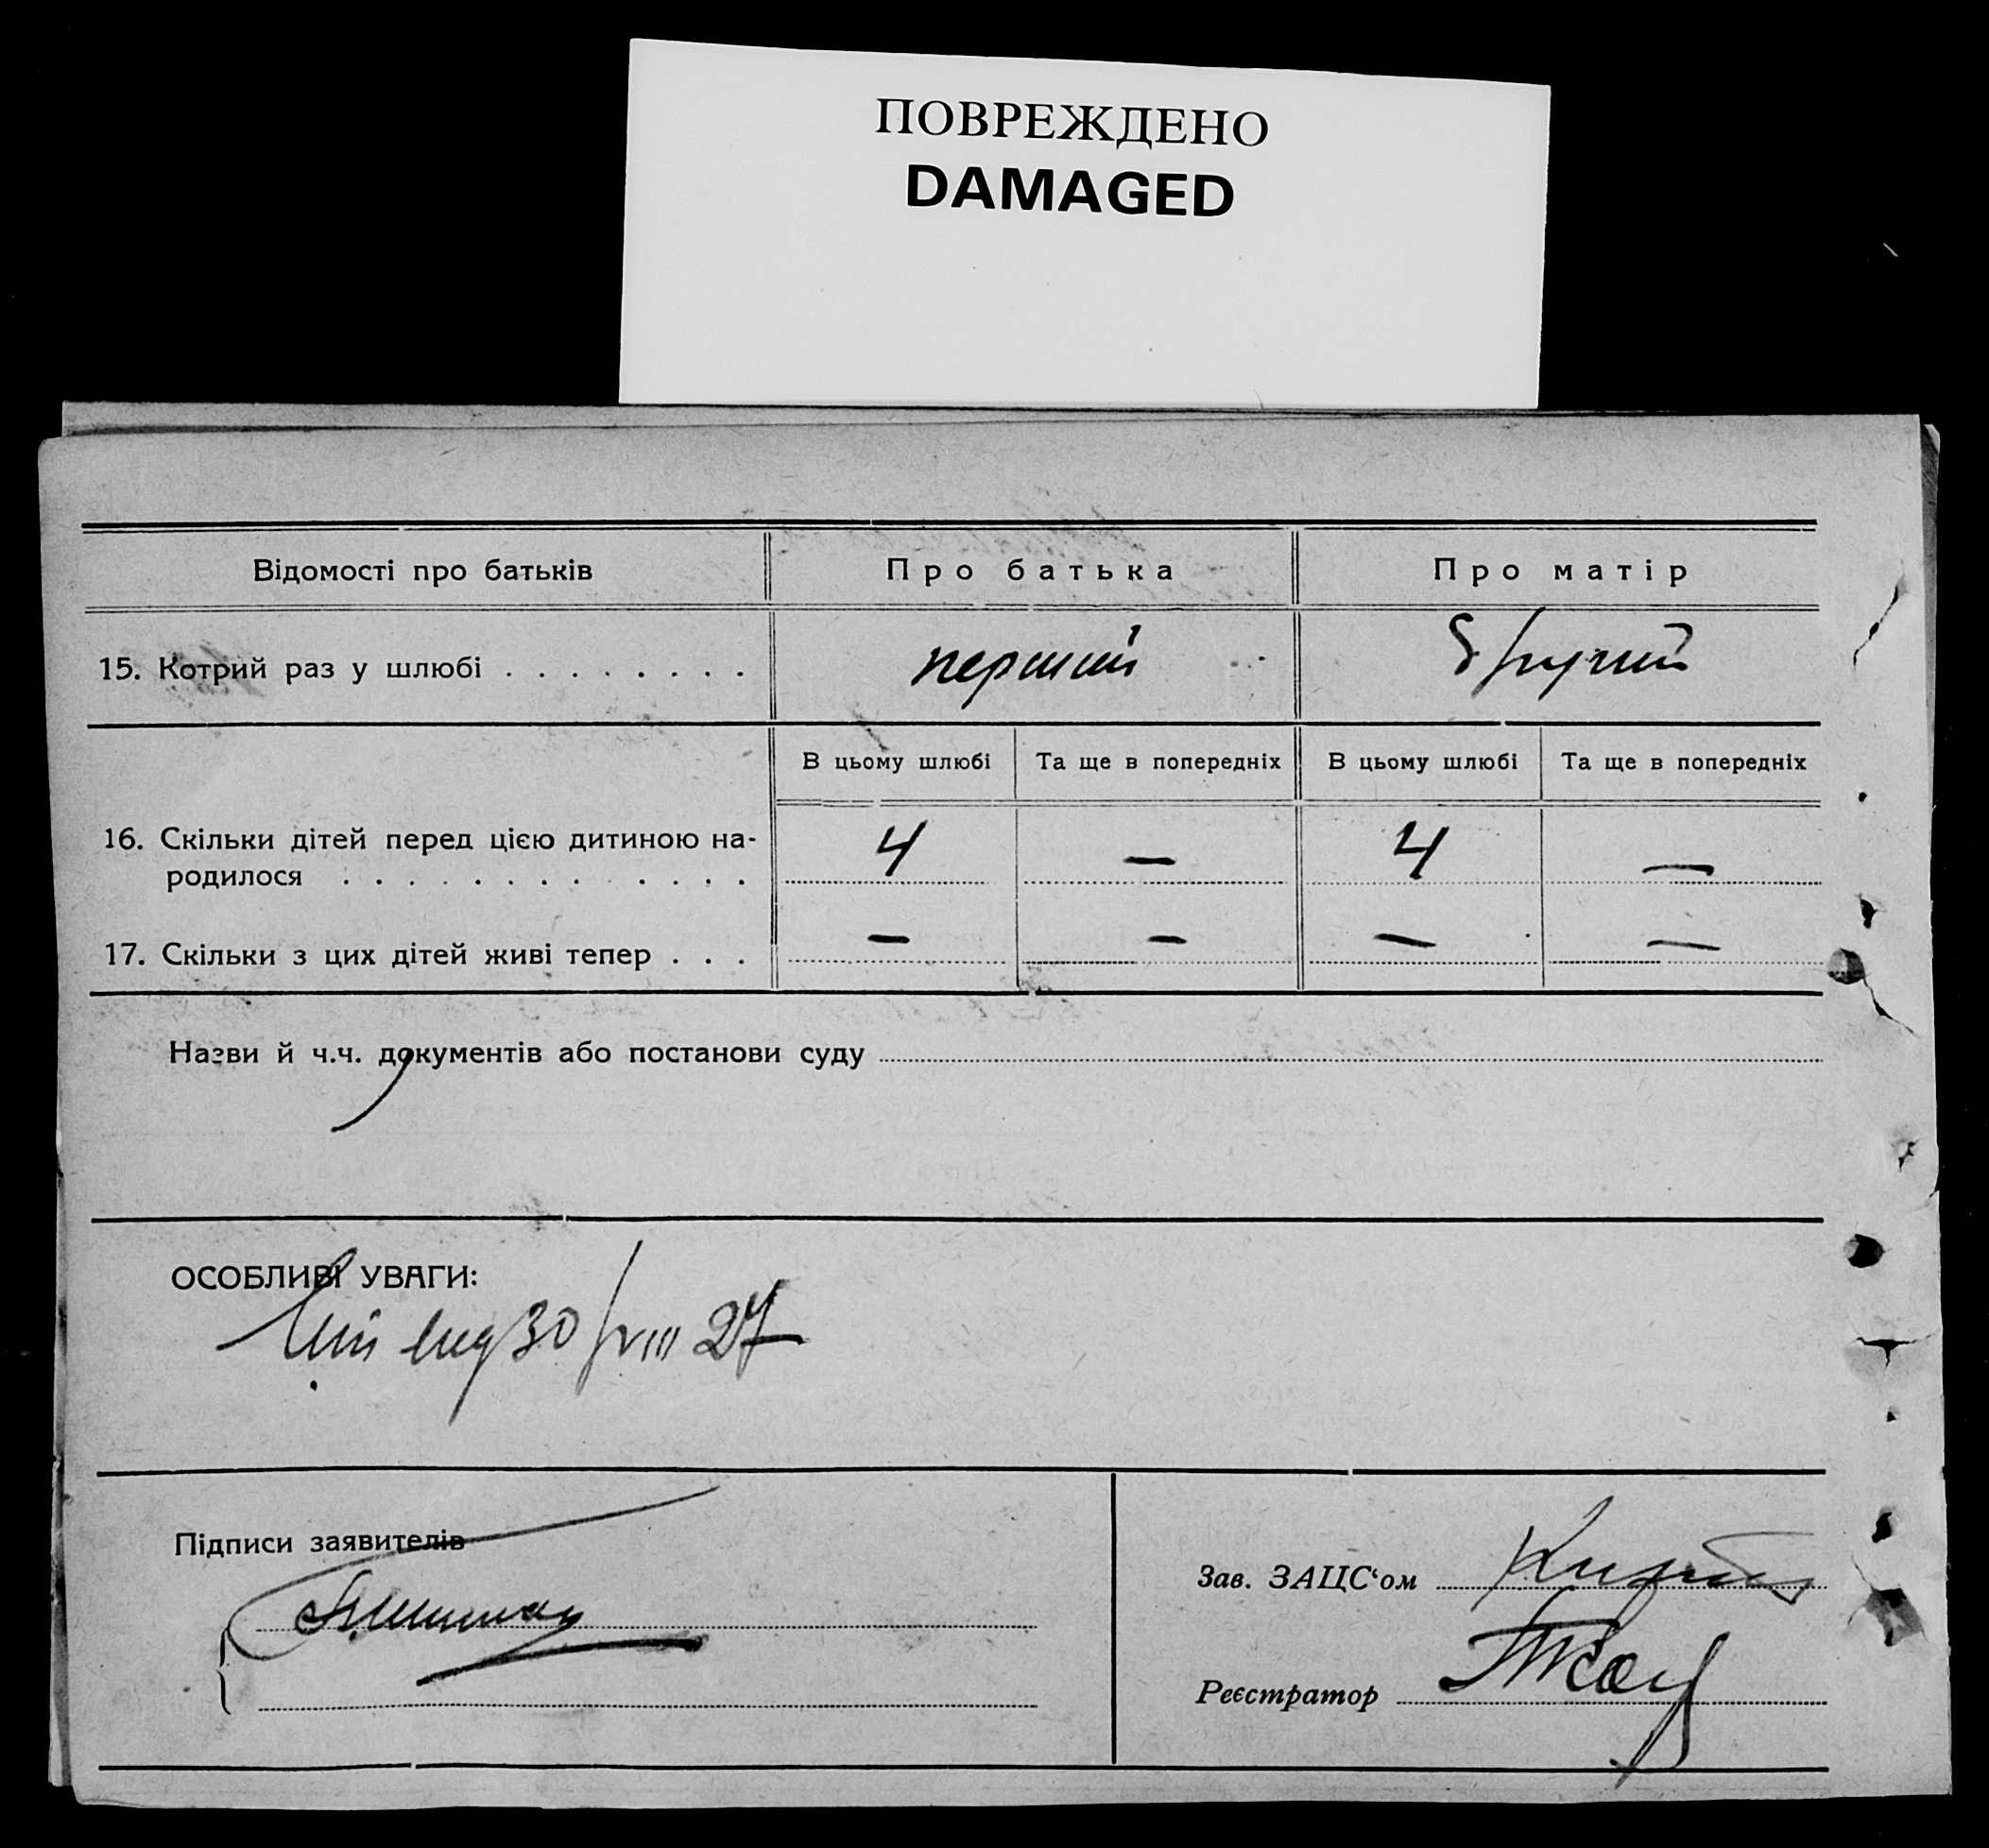 ПОВРЕЖДЕНО
DAMAGED
Відомості про батьків
Про батька
Про матір
15. Котрий раз у шлюбі . . . . . . . .
перший
другий
В цьому шлюбі
Та ще в попередніх
В цьому шлюбі
Та ще в попередніх
16. Скільки дітей перед цією дитиною на-
родилося . . . . . . . . . . . . .
4
—
4
—
17. Скільки з цих дітей живі тепер . . .
—
—
—
—
Назви й ч.ч. документів або постанови суду
ОСОБЛИВІ УВАГИ:
30/VIII 27
Підписи заявителів
Зав. ЗАЦС‘ом
Реєстратор